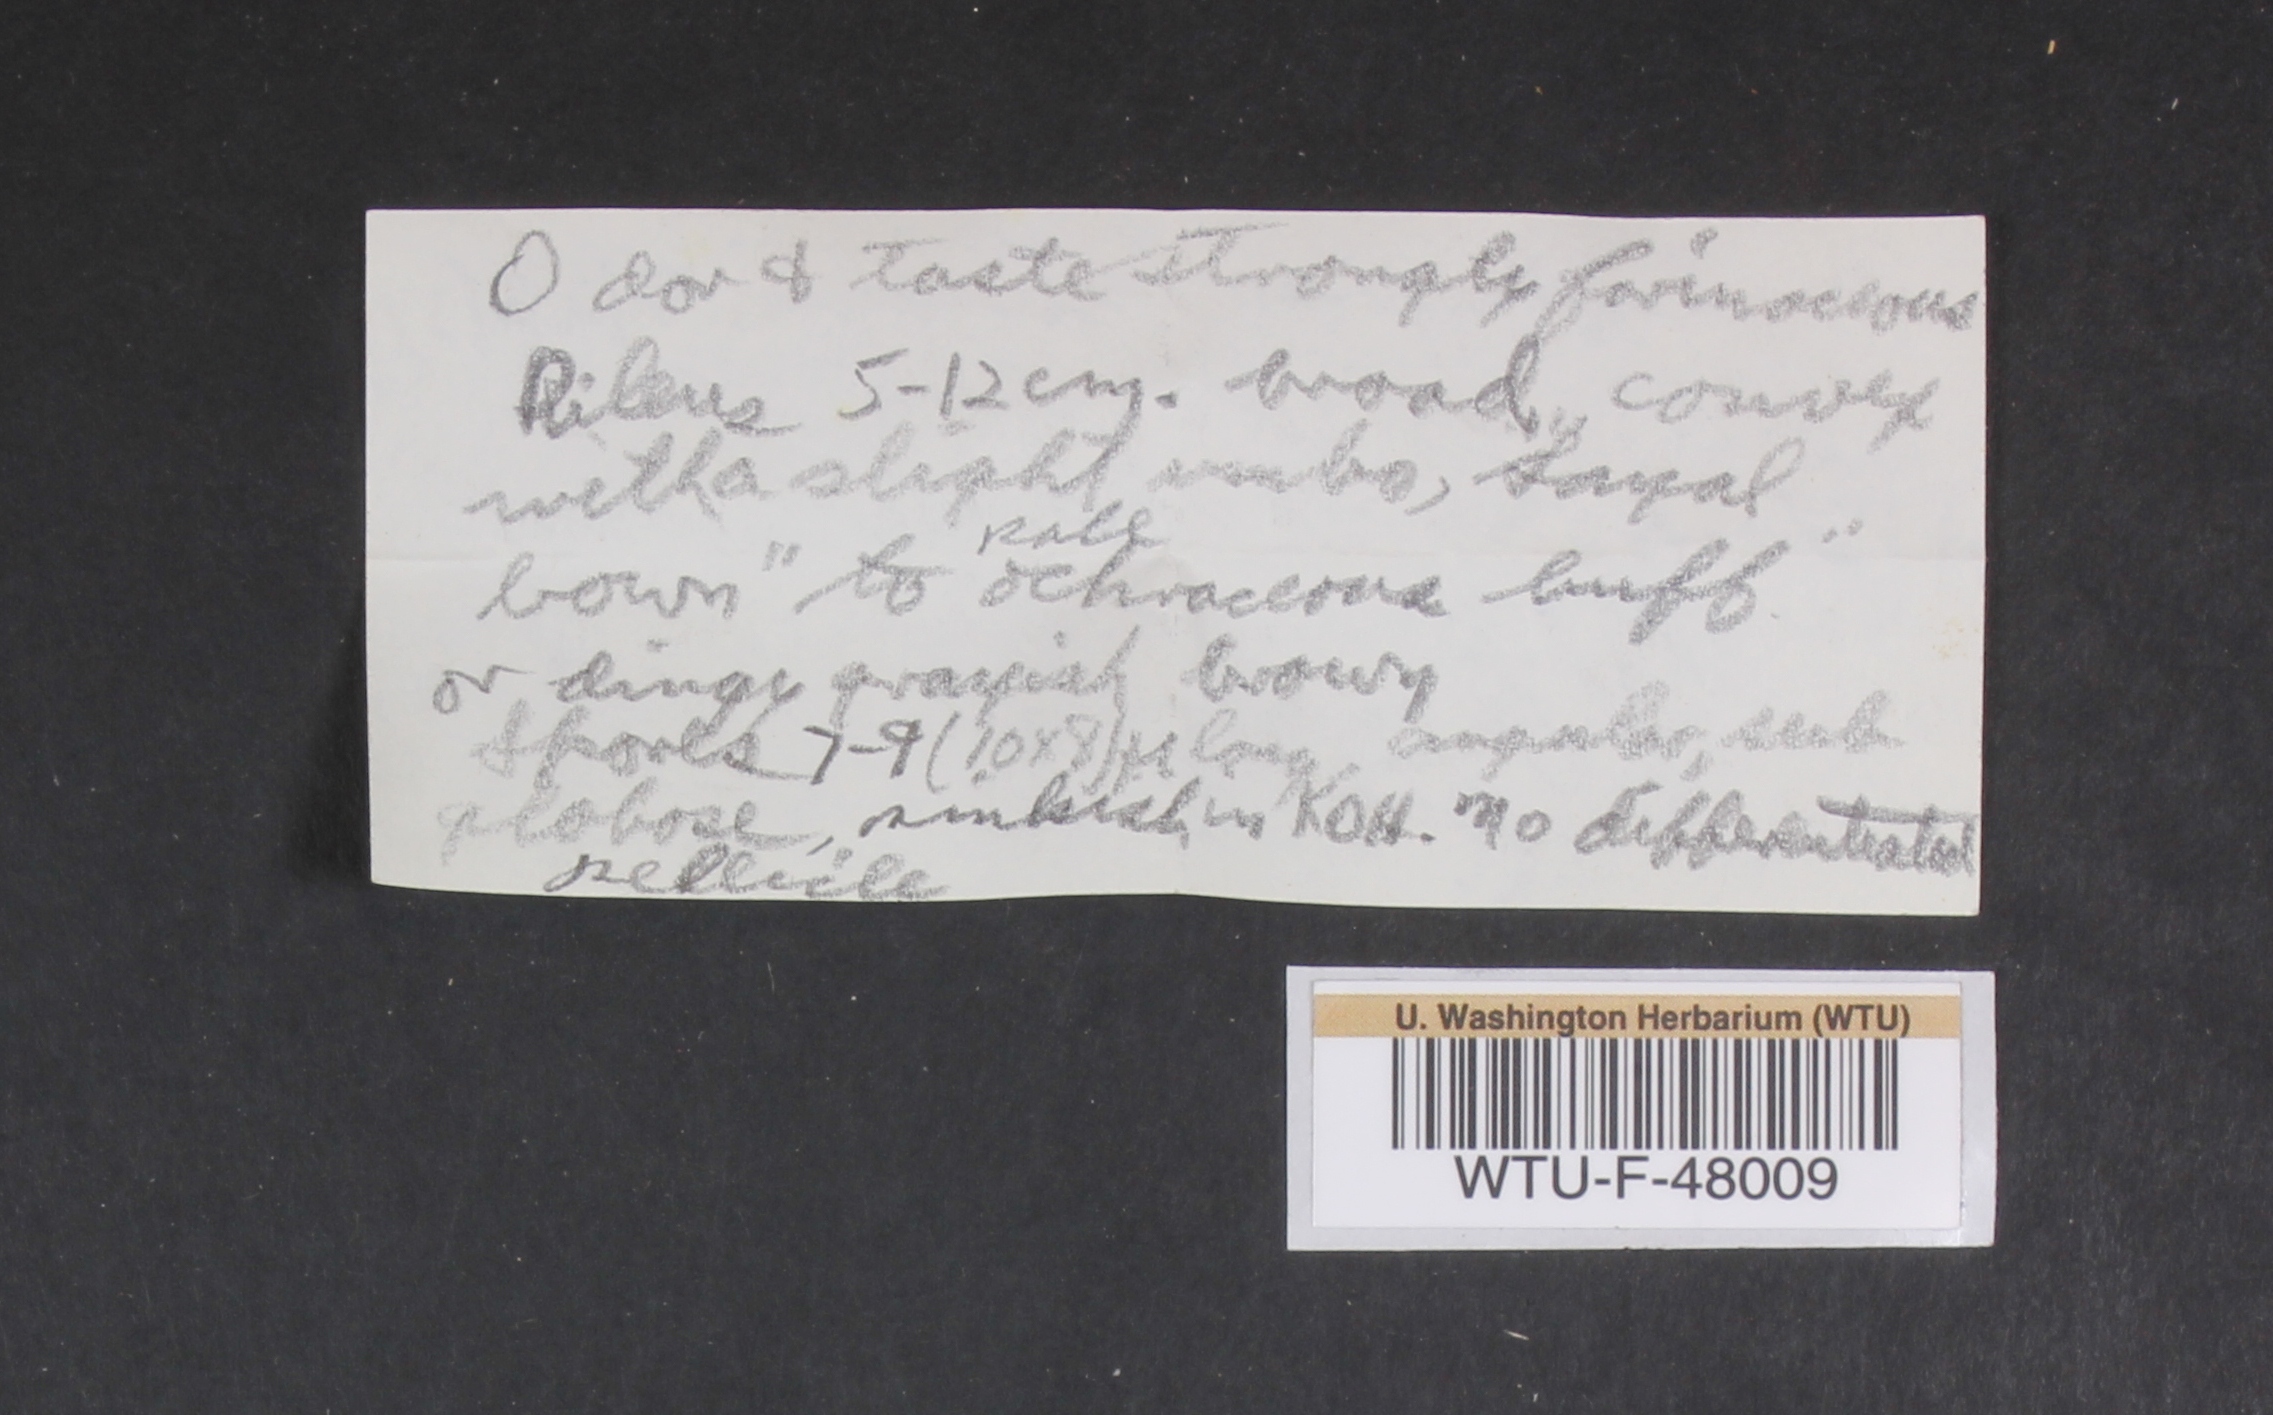 Odor & taste strongly farinaceous
Pileus 5-12 cm. broad, convex
with a slight umbo, "sayal
bown" to pale ochraceous buff"
or dingy grayish brown
Spores 7-9 (10x8) µ long angular, sub
globose, pinkish in KOH. No differentiated
pellicle
U. Washington Herbarium (WTU)
WTU-F-48009